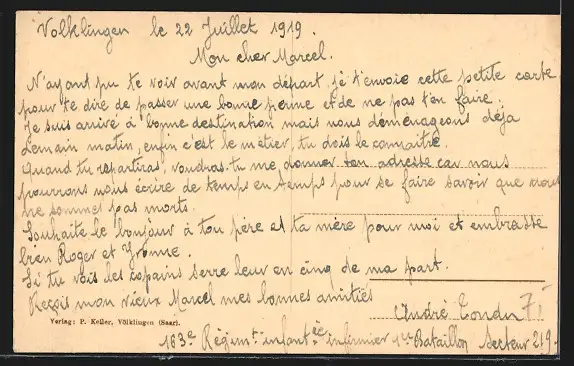 Volklingen le 22 Juillet 1919.
Mon cher Marcel.
N'ayant pu te voir avant mon départ je t'envoie cette petite carte
pour te dire de passer une bonne perme et de ne pas t'en faire.
Je suis arrivé à bonne destination mais nous déménageons déja
demain matin, enfin c'est le métier, tu dois le connaitre.
Quand tu repartiras, voudras-tu me donner ton adresse car nous
pourrons nous écrire de temps en temps pour se faire savoir que nous
ne sommes pas morts.
Souhaite le bonjour à ton père et ta mère pour moi et embrasse
bien Roger et Yvonne.
Si tu vois les copains serre leur en cinq de ma part.
Reçois mon vieux Marcel mes bonnes amitiés
André
Verlag: P. Keller, Völklingen (Saar).
163e Régimt infantee infirmier 1er Bataillon Secteur 219.